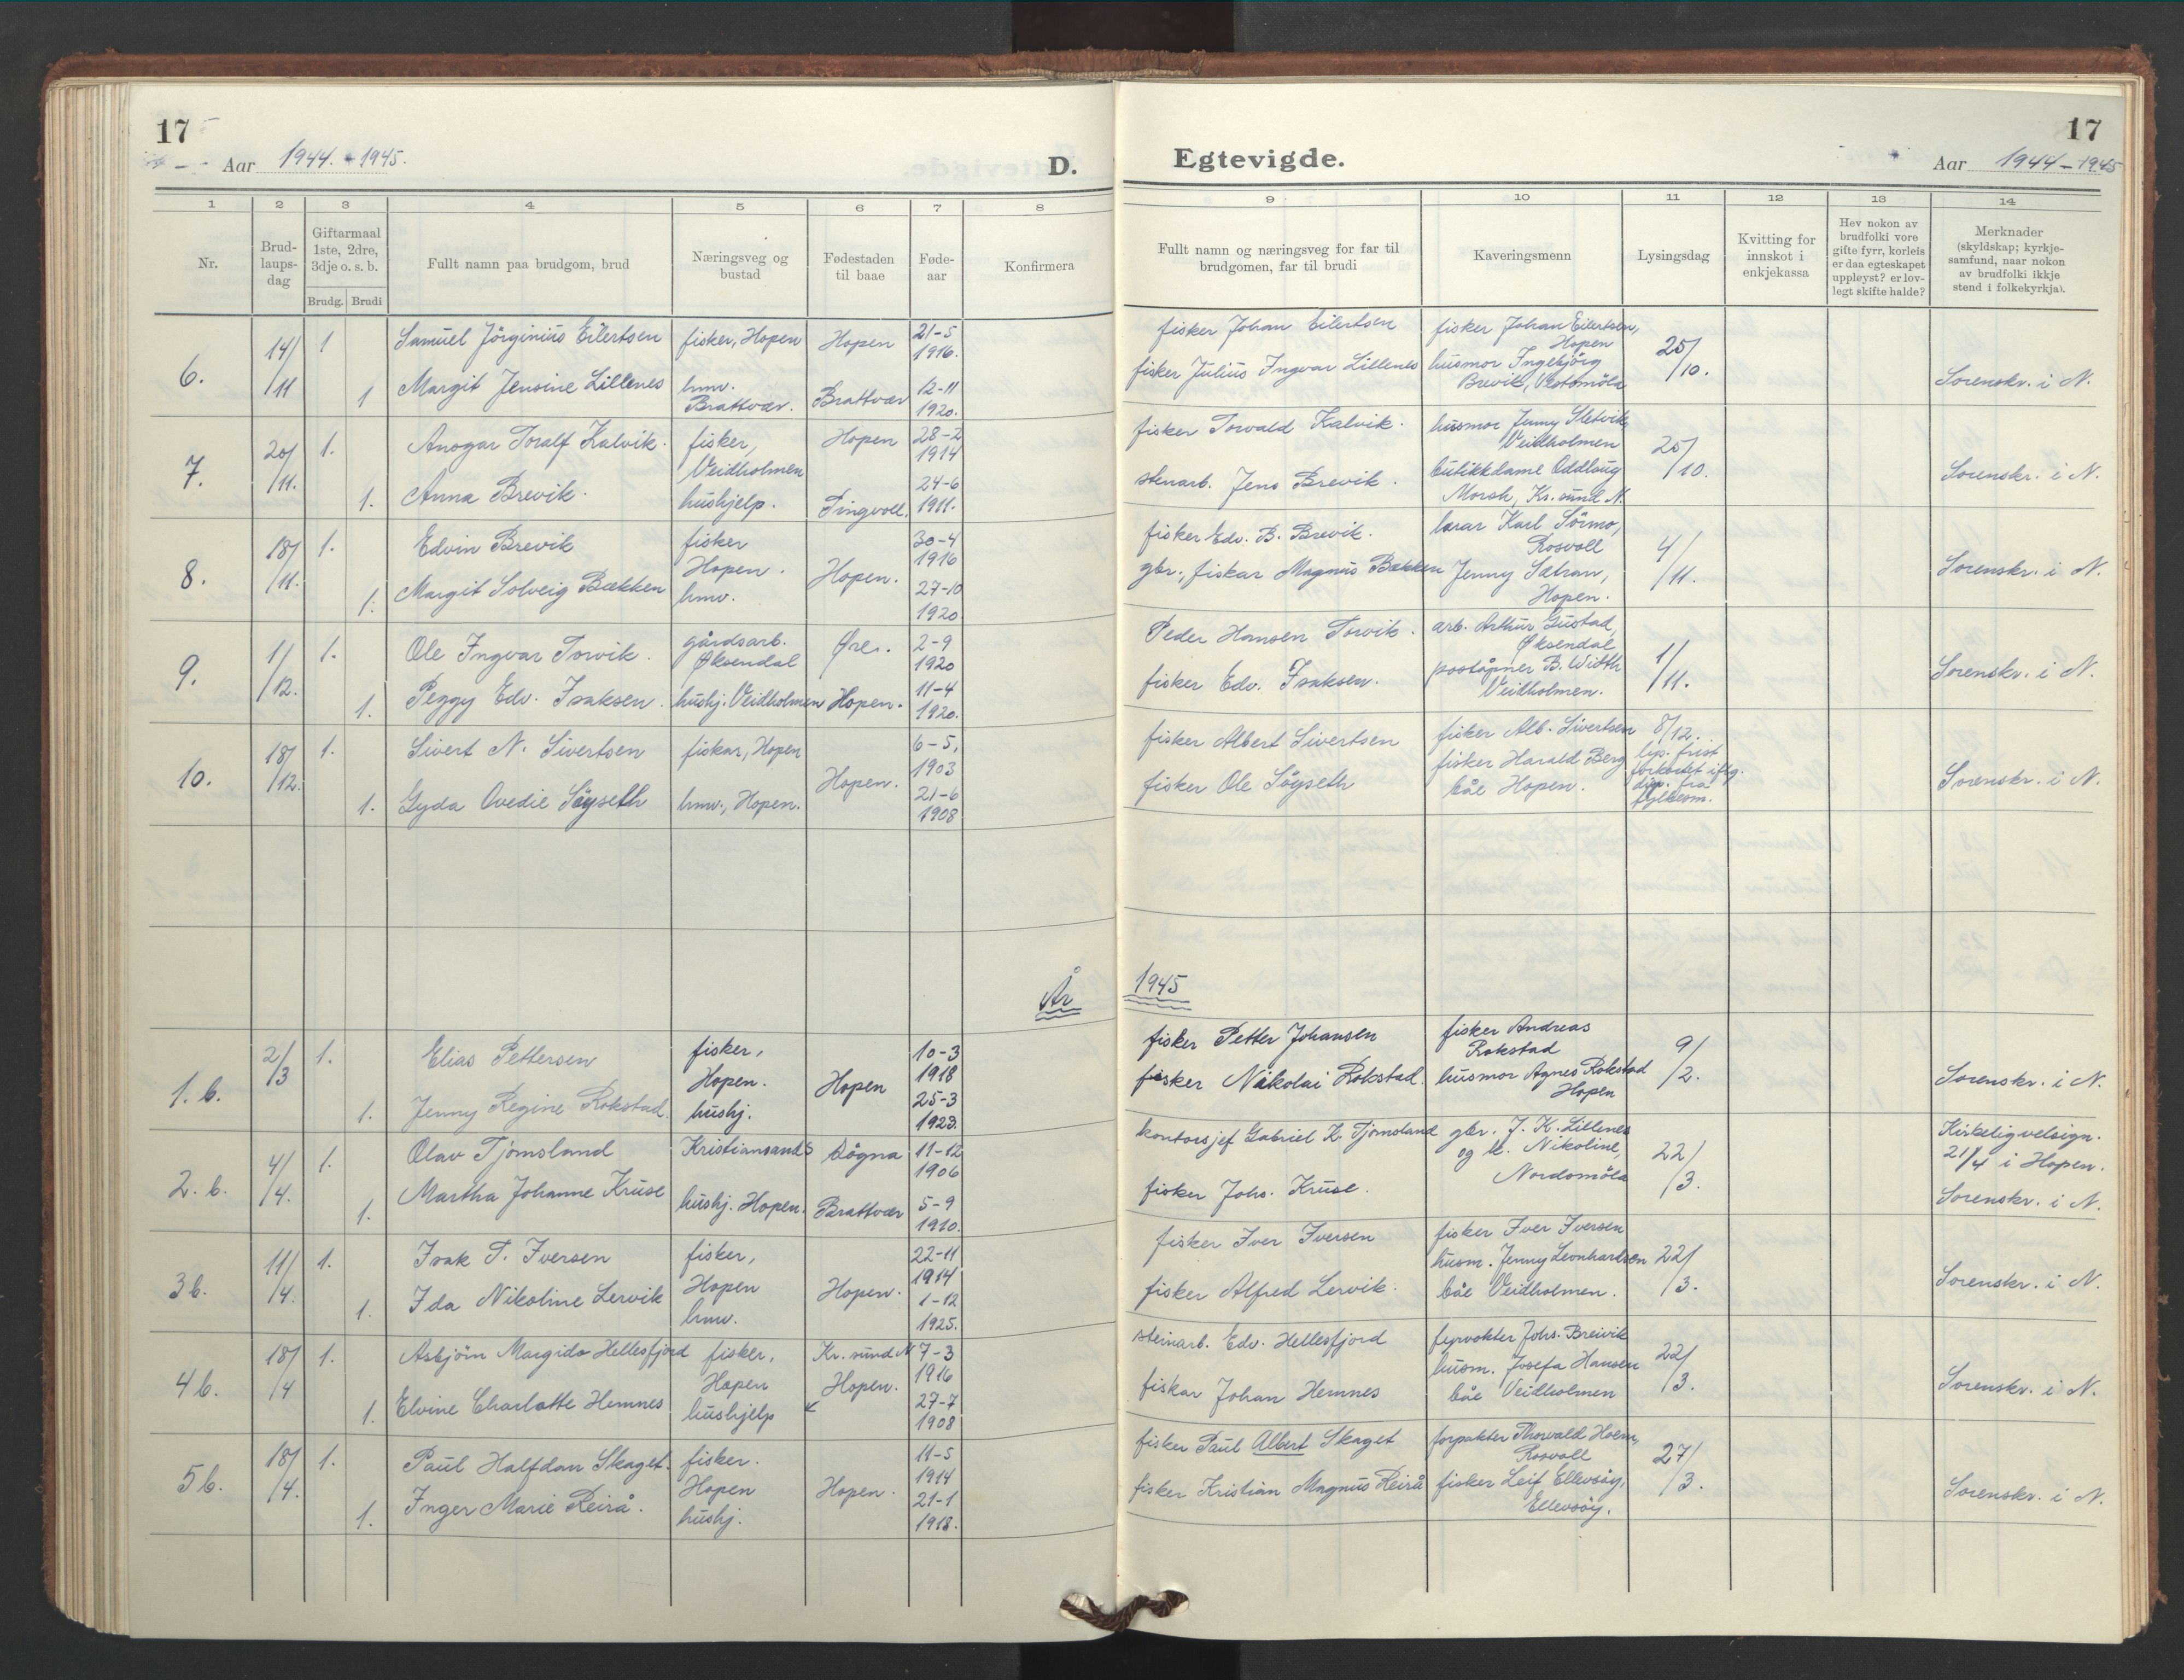 17
Aar 1944 - 1945.
D.
1 2 3 4 5 6 7 8
Nr.
Brud-
laups-
dag
Giftarmaal
1ste, 2dre,
3dje o. s. b.
Brudg. Brudi
Fullt namn paa brudgom, brud
Næringsveg og
bustad
Fødestaden
til baae
Føde-
aar
Konfirmera
6. 14/11 1 Samuel Jörginius Eilertsen fisker, Hopen Hopen 21-5 1916.
1 Margit Jensine Lillenes hmv. Brattvær. Brattvær 12-11 1920.
7. 20/11. 1. Ansgar Toralf Kalvik. fisker, Veidholmen Hopen 28-2 1914
1. Anna Brevik. hushjelp. Tingvoll. 24-6 1911.
8. 18/11. 1. Edvin Brevik fisker Hopen. Hopen. 30-4 1916
1. Margit Solveig Bækken hmv. 27-10 1920
9. 1/12. 1. Ole Ingvar Torvik. gårdsarb. Øksendal Øre. 2-9 1920
1. Peggy Edv. Isaksen. hushj. Veidholmen Hopen. 11-4 1920.
10. 18/12. 1. Sivert N. Sivertsen fiskar, Hopen Hopen. 6-5, 1903
1. Gyda Ovedie Söyseth hmv., Hopen. 21-6 1908
År
1.b. 2/3 1. Elias Pettersen fisker, Hopen. Hopen 10-3 1918
1. Jenny Regine Rokstad hushj. 25-3 1923.
2.b. 4/4. 1. Olav Tjömsland Kristiansands Sögna 11-12 1906
1. Martha Johanne Kruse hushj. Hopen. Brattvær 5-9 1910.
3b. 11/4. 1. Isak T. Iversen fisker, Hopen Hopen. 22-11 1914
1. Ida Nikoline Lervik hmv. 1-12 1925.
4b. 18/4 1. Asbjörn Margido Hellesfjord fisker, Hopen Kr.sund N 7-3 1916
1. Elvine Charlotte Hemnes hushjelp Hopen. 27-7 1908
5b. 18/4. 1. Paul Halfdan Skaget. fisker. Hopen Hopen. 11-5 1914
1. Inger Marie Reirå. hushj. 21-1 1918.
Egtevigde.
17
Aar 1944-1945
9 10 11 12 13 14
Fullt namn og næringsveg for far til
brudgomen, far til brudi
Kaveringsmenn
Lysingsdag
Kvitting for
innskot i
enkjekassa
Hev nokon av
brudfolki vore
gifte fyrr, korleis
er daa egteskapet
uppløyst? er lov-
legt skifte halde?
Merknader
(skyldskap; kyrkje-
samfund, naar nokon
av brudfolki ikkje
stend i folkekyrkja).
fisker Johan Eilertsen fisker Johan Eilertsen, Hopen 25/10.
fisker Julius Ingvar Lillenes husmor Ingebjörg Brevik, Vestsmöla Sorenskr. i N.
fisker Torvald Kalvik. husmor Jenny Sletvik, Veidholmen 25/10.
stenarb. Jens Brevik. butikkdame Oddlaug Morsk, Kr.sund N. Sorenskr. i N.
fisker Edv. B. Brevik. lærar Karl Sörmo, Rosvoll 4/11.
gbr., fiskar Magnus Bækken Jenny Sætran, Hopen. Sorenskr. i N.
Peder Hansen Torvik. arb. Arthur Gustad, Øksendal 1/11.
fisker Edv. Isaksen. poståpner B. Width Veidholmen. Sorenskr. i N.
fisker Albert Sivertsen fisker Alb. Sivertsen 8/12.
fisker Ole Söyseth fisker Harald Berg båe Hopen. frist forkortet iflg. disp. fra fylkesm. Sorenskr. i N.
1945
fisker Petter Johansen fisker Andreas Rokstad 9/2.
fisker Nikolai Rokstad. husmor Agnes Rokstad Hopen Sorenskr. i N.
kontorsjef Gabriel K. Tjömsland gbr. J. K. Lillenes og k. Nikoline, Nordsmöla 22/3. Kirkelig velsign. 21/4 i Hopen.
fisker Johs. Kruse. Sorenskr. i N.
fisker Iver Iversen fisker Iver Iversen 22/3.
fisker Alfred Lervik. husm. Jenny Leonhardsen båe Veidholmen. Sorenskr. i N.
steinarb. Edv. Hellesfjord fyrvokter Johs. Breivik 22/3.
fiskar Johan Hemnes husm. Josefa Hansen båe Veidholmen Sorenskr. i N.
fisker Paul Albert Skaget forpakter Thorvald Holm, Rosvoll 27/3.
fisker Kristian Magnus Reirå fisker Leif Ellevsöy, Ellevsöy. Sorenskr. i N.